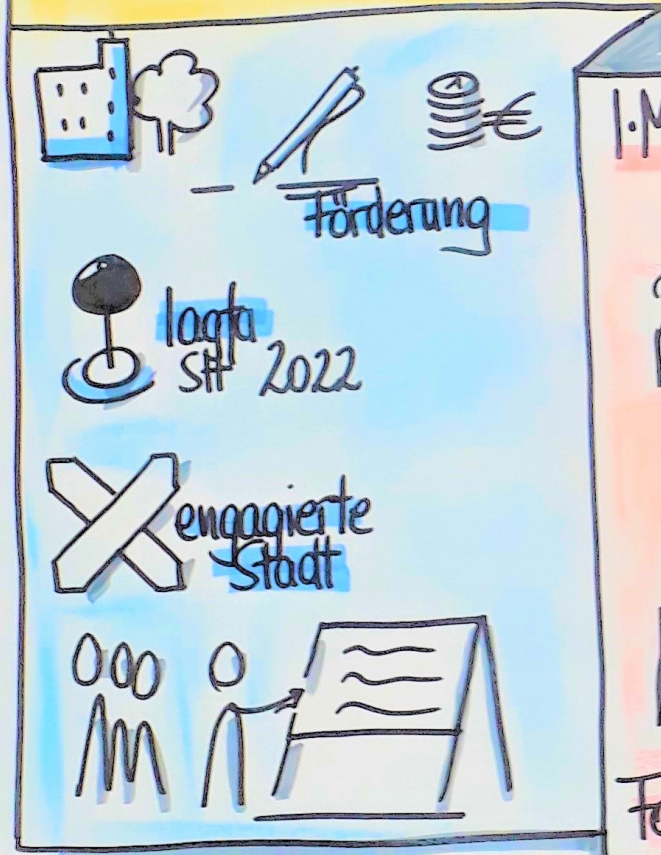 €
Förderung
lagfa
SH 2022
engagierte
Stadt
1.M
Fe